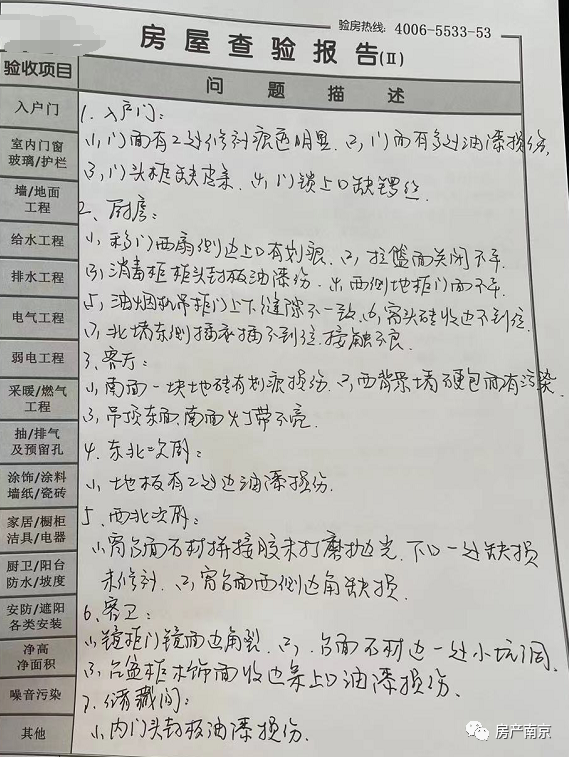 验房热线: 4006-5533-53
房屋查验报告(II)
验收项目
问题描述
入户门
室内门窗
玻璃/护栏
墙/地面
工程
给水工程
排水工程
电气工程
弱电工程
采暖/燃气
工程
抽/排气
及预留孔
涂饰/涂料
墙纸/瓷砖
家居/橱柜
洁具/电器
厨卫/阳台
防水/坡度
安防/遮阳
各类安装
净高
净面积
噪音污染
其他
1. 入户门:
(1), 门面有2处修补痕色明显. (2), 门面有多处油漆损伤,
(3), 门头柜缺皮条. (4), 门锁上口缺锣丝.
2、厨房:
(1), 移门西扇侧边上口有划痕. (2), 拉篮面关闭不平.
(3), 消毒柜柜头封板油漆伤. (4), 西侧地柜门面不平.
(5), 油烟机吊柜门上下缝隙不一致. (6), 窗头砖收边不到位.
(7), 北墙东侧插座插不到位, 接触不良.
3、客厅:
(1), 南面一块地砖有划痕损伤. (2), 西背景墙硬包面有污染.
(3), 吊顶东面.南面灯带不亮.
4. 东北次卧:
(1), 地板有2处边油漆损伤.
5、西北次卧:
(1), 窗台面石材拼接胶未打磨抛光. 下口一处缺损
未修补. (2), 窗台面西侧边角缺损.
6、客卫:
(1), 镜柜门镜面边角裂. (2), 台面石材边一处小坑洞.
(3), 台盆柜木饰面收边条上口油漆损伤.
7、储藏间:
(1), 内门头封板油漆损伤.
房产南京